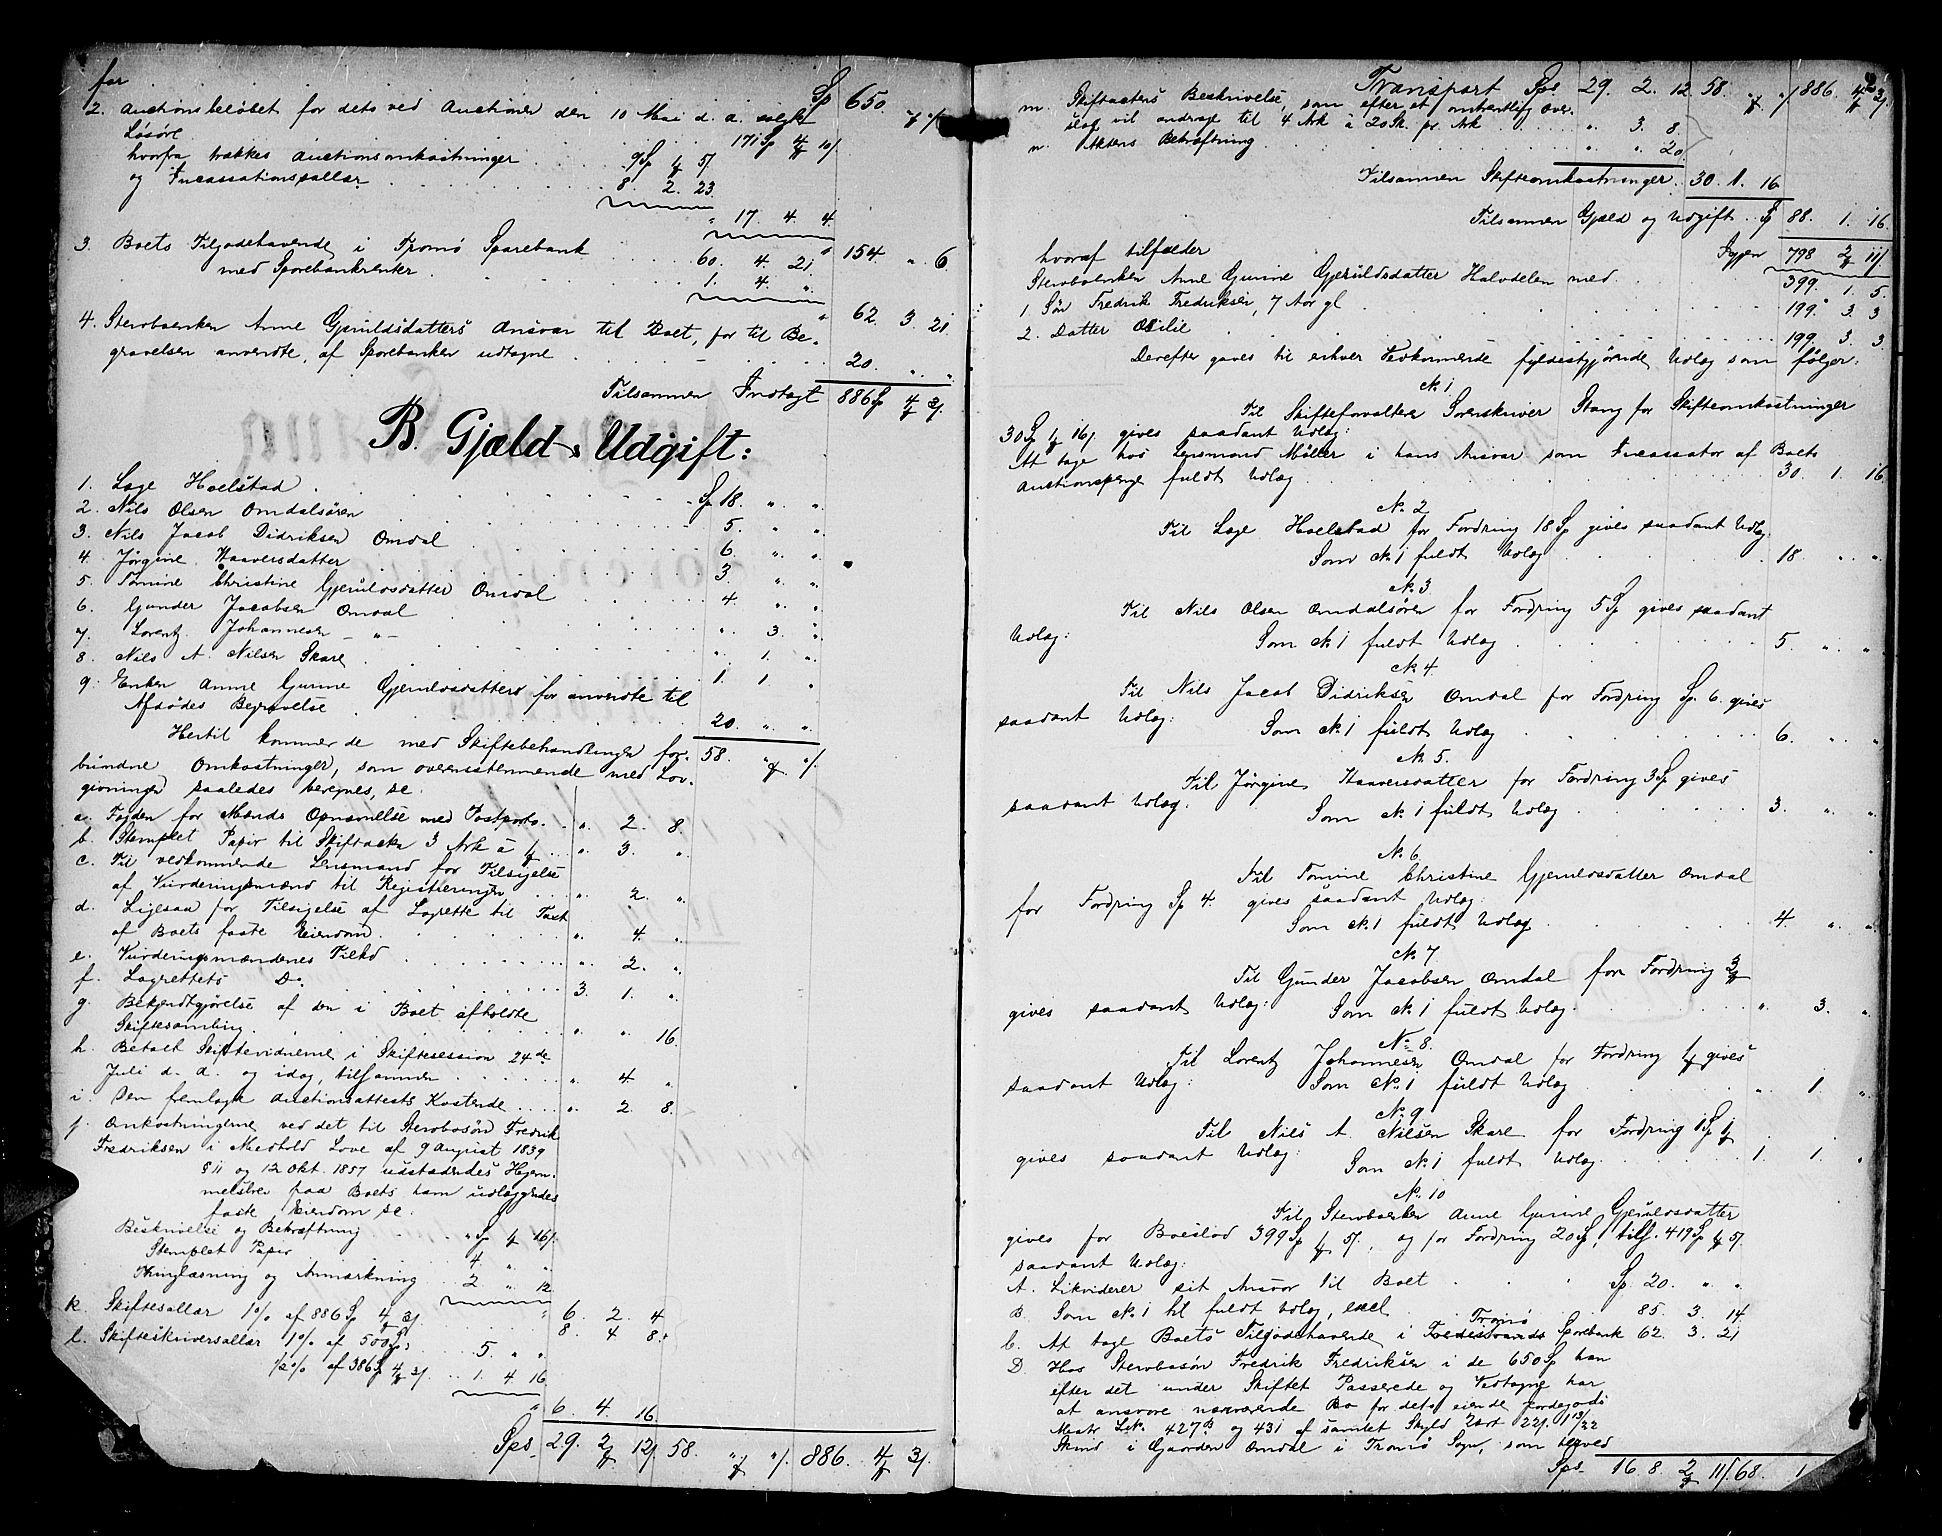 for
Sp 650. " "
2. Auctionsbeløbet for dets ved Auctionen den 10 Mai d. a. solgte
Løsøre . . . . 171 Sp 4 10/
hvorfra trækkes Auctionsomkostninger . . . 9 Sp 1 5/
og Incassationssallær . . . 8. 2. 23
" 17. 4. 4.
154. " 6
3. Boets Tilgodehavende i Tromø Sparebank . . . 60. 4. 21.
med Sparebankrenter . . . 1. 4. "
62. 3. 21
4. Stervboenken Anne Gjeruldsdatters Ansvar til Boet, for til Be-
gravelsen anvendte, af Sparebanken udtagne . . . 20. " "
Tilsammen Indtægt 886 Sp 4 3/
B. Gjæld & Udgift:
1. Lage Hoelstad . . . Sp 18. " "
2. Nils Olsen Omdalsøren . . . 5. " "
3. Nils Jacob Didriksen Omdal . . . 6. " "
4. Jørgine Haaversdatter . . . 3. " "
5. Tomine Christine Gjeruldsdatter Omdal . . . 4. " "
6. Gunder Jacobsen Omdal . . . " 3. "
7. Lorentz Johannesen – " – . . . " 1. "
8. Nils A. Nilsen Skare . . . 1. 1. "
9. Enken Anne Gurine Gjeruldsdatters for anvendte til
Afdødes Begravelse . . . 20. " "
58. " "/
Hertil kommer de med Skiftebehandlingen for-
bundne Omkostninger, som overensstemmende med Lov-
givningen saaledes beregnes, se.
a. Fogden for Mænds Opnævnelse med Postporto . . " 2. 8.
b. Stemplet Papir til Skifteakten 3 Ark à 1 . . " 3. "
c. Til vedkommende Lensmand for Tilsigelse
af Vurderingsmænd til Registreringen . . " 2. "
d. Ligesaa for Tilsigelse af Lagrette til Taxt
af Boets faste Eiendom . . . " 4. "
e. Vurderingsmændenes Tilkd . . . " 2. "
f. Lagrettets Do . . . 3. 1. "
g. Bekjendtgjørelse af den i Boet afholdte
Skiftesamling . . . " " 16.
h. Betalt Skiftevidnerne i Skiftesession 24de
Juli d. a. og idag, tilsammen . . . " 4. "
i. Den fremlagte Auctionsattests Kostende . . . " 2. 8.
j. Omkostningerne ved det til Stervbosøn Fredrik
Fredriksen i Medhold Love af 9 August 1839
§ 11 og 12 Okt. 1857 udstædendes Hjem-
melsbrev paa Boets ham udlæggendes
faste Eiendom se.
Beskrivelse og Bekræftning . . . " Sp 1 16/
Stemplet Papir . . . 4. " "
Thinglæsning og Anmærkning . . . 2 " 12
" 6. 2. 4
k. Skiftesallær 1 % af 886 Sp 4 3/ . . . 8. 4. 8.
l. Skifteskriversallær 1 % af 500 Sp . . . 5. " "
1/2 % af 386 Sp 4 3/ . . 1. 4 16
" 6. 4. 16
Sps 29. 2 12/ 58. " "/. 886. 4 3/.
Transport Sps 29. 2. 12 58. " "/ 886. 4 3/.
m. Skifteaktens Beskrivelse, som efter et omtrentlig Over-
slag vil andrage til 4 Ark à 20 Sk. pr. Ark . . . " 3. 8.
n. Aktens Bekræftning . . . " " 20.
Tilsammen Skifteomkostninger. 30. 1. 16
Tilsammen Gjæld og Udgift . . Sp 88. 1. 16.
Igjen 798 2 11/
hvoraf tilfalder
Stervboenken Anne Gurine Gjeruldsdatter Halvdelen med . . . 399. 1. 5.
1. Søn Fredrik Fredriksen, 7 Aar gl . . . 199. 3. 3
2. Datter Osilie . . . 199. 3. 3
Derefter gaves til enhver Vedkommende fyldestgjørende Udlæg som følger:
No 1
Til Skifteforvalteren Sorenskriver Stang for Skifteomkostninger
30 Sp 1 16/ gives saadant Udlæg:
At tage hos Lensmand Møller i hans Ansvar som Incassator af Boets
Auctionspenge fuldt Udlæg . . . 30. 1. 16
No 2
Til Lage Hoelstad for Fordring 18 Sp gives saadant Udlæg
Som No 1 fuldt Udlæg . . . 18 " "
No 3
Til Nils Olsen Omdalsøren for Fordring 5 Sp gives saadant
Udlæg: Som No 1 fuldt Udlæg . . . 5. " "
No 4
Til Nils Jacob Didriksen Omdal for Fordring Sp. 6. gives
saadant Udlæg: Som No 1 fuldt Udlæg . . . 6. " "
No 5.
Til Jørgine Haaversdatter for Fordring 3 Sp gives
saadant Udlæg. Som No 1 fuldt Udlæg . . . 3. " "
No 6
Til Tomine Christine Gjeruldsdatter Omdal
for Fordring Sp 4. gives saadant Udlæg:
Som No 1 fuldt Udlæg . . . 4. " "
No 7
Til Gunder Jacobsen Omdal for Fordring 3
gives saadant Udlæg: Som No 1 fuldt Udlæg . . . " 3. "
No 8.
Til Lorentz Johannesen Omdal for Fordring 1 gives
saadant Udlæg: Som No 1 fuldt Udlæg . . . " 1. "
No 9
Til Nils A. Nilsen Skare for Fordring 1 Sp 1
gives saadant Udlæg: Som No 1 fuldt Udlæg . . . 1. 1. "
No 10
Til Stervboenken Anne Gurine Gjeruldsdatter
gives for Boeslod 399 Sp 1 5/., og for Fordring 20 Sp, tils. 419 Sp 1 5/.
saadant Udlæg:
A. Likviderer sit Ansvar til Boet . . . Sp. 20. " "
B. Som No 1 til fuldt Udlæg, exel . . . 85. 3. 14.
Tromø
C. At tage Boets Tilgodehavende i Fredrikstands Sparebank 62. 3. 21
D Hos Stervbosøn Fredrik Fredriksen i de 650 Sp han
efter det under Skiftet Passerede og Vedtagne har
at ansvare nærværende Bo for dets eiende Jordegods
Matr Lno. 427B og 431 af samlet Skyld 2 Ort 22/. 1 13/22
Skind i Gaarden Omdal i Tromø Sogn, som herved
Sps 16. 8. 2 11/ 68. 1